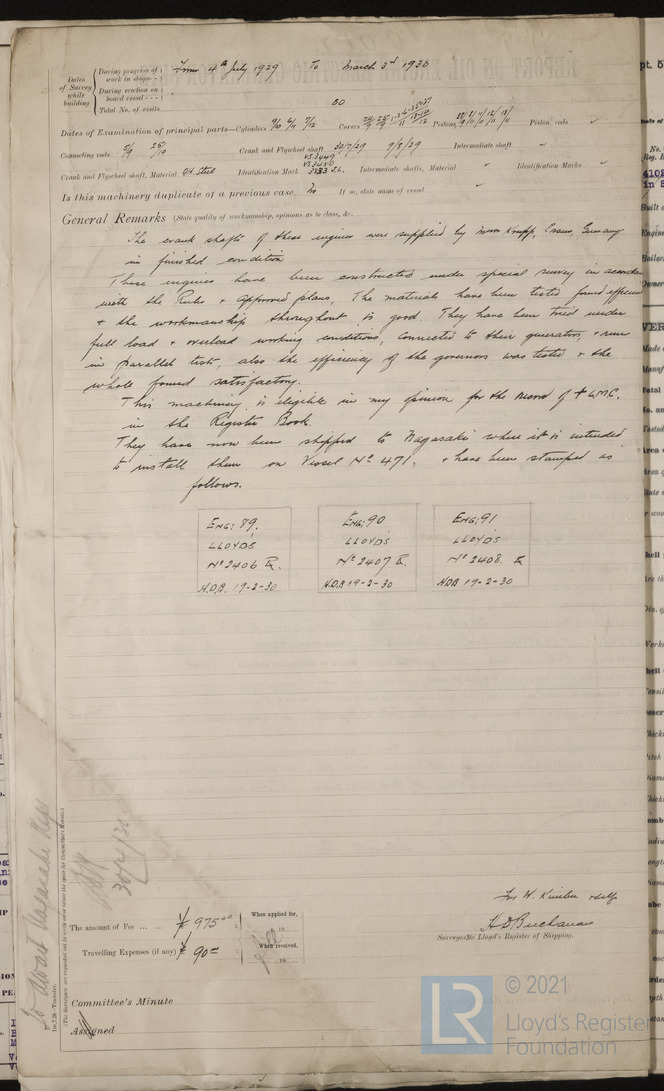 Dates of Survey while building
During progress of work in shops - - From 4th July 1929 To March 3rd 1930
During erection on board vessel - - -
Total No. of visits 30
Dates of Examination of principal parts—Cylinders Covers Pistons Piston rods "
Connecting rods Crank and Flywheel shaft 30/7/29 9/8/29 Intermediate shaft "
Crank and Flywheel shaft, Material O.H. Steel Identification Mark Intermediate shafts, Material " Identification Marks "
Is this machinery duplicate of a previous case No If so, state name of vessel "
General Remarks (State quality of workmanship, opinions as to class, &c.
The crank shafts of these engines were supplied by Messrs Krupp, Essen, Germany
in finished condition
These engines have been constructed under special survey in
with the Rules & Approved plans, The materials have been tested found efficient
& the workmanship throughout is good. They have been tried under
full load & overload working conditions, connected to their generators, & run
in parallel test, also the efficiency of the governors was tested & the
whole found satisfactory.
This machinery is eligible in my opinion for the record of + L.M.C.
in the Register Book.
They have now been shipped to Nagasaki where it is intended
to install them on Vessel No 471, & have been stamped as
follows.
ENG: 89.
LLOYDS
No 2406
H.D.B. 19-2-30
ENG: 90
LLOYDS
No 2407
H.D.B 19-2-30
ENG: 91
LLOYDS
No 2408.
HDB 19-2-30
To await Nagasaki Rep
The amount of Fee ... ... 975.00
When applied for,
19
Travelling Expenses (if any) 90.00
When received,
19
H D Buchanan
Surveyor to Lloyd's Register of Shipping.
Committee's Minute
Assigned
(The Surveyors are requested not to write on or below the space for Committee's Minute.)
© 2021
Lloyd's Register
Foundation
LR